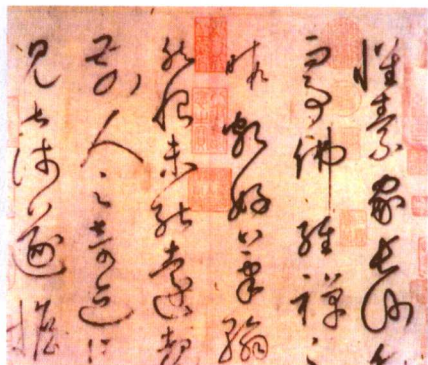 懷素家長沙幼
事佛經禪之
暇頗好筆翰
然恨未能遠覩
前人之奇迹所
見甚淺遂擔